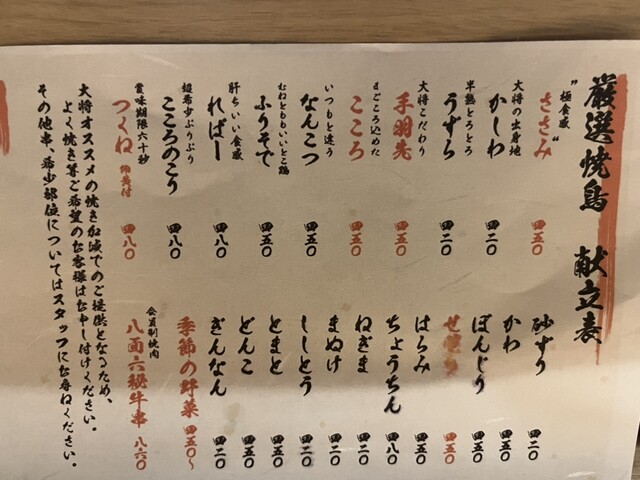 厳選焼鳥　献立表
〝極食感〟
ささみ　四五〇
大将の出身地
かしわ　四二〇
半熟とろとろ
うずら　四二〇
大将こだわり
手羽先　四五〇
まごころ込めた
こころ　四五〇
いつもと違う
なんこつ　四五〇
むねとももいいとこ鶏
ふりそで　四五〇
肝ちいい食感
ればー　四八〇
超希少ぷりぷり
こころのこり　四八〇
賞味期限六十秒
つくね　四八〇
砂ずり　四二〇
かわ　四五〇
ぼんじり　四五〇
せせり　四五〇
はらみ　四五〇
ちょうちん　四八〇
ねぎま　四二〇
まぬけ　四二〇
ししとう　四二〇
とまと　四五〇
どんこ　四五〇
ぎんなん　四二〇
季節の野菜　四五〇〜
会員制焼肉
八面六秘牛串　八六〇
大将オススメの焼き加減でのご提供となるため、
よく焼き等ご希望のお客様はお申し付けください。
その他串、希少部位についてはスタッフにお尋ねください。